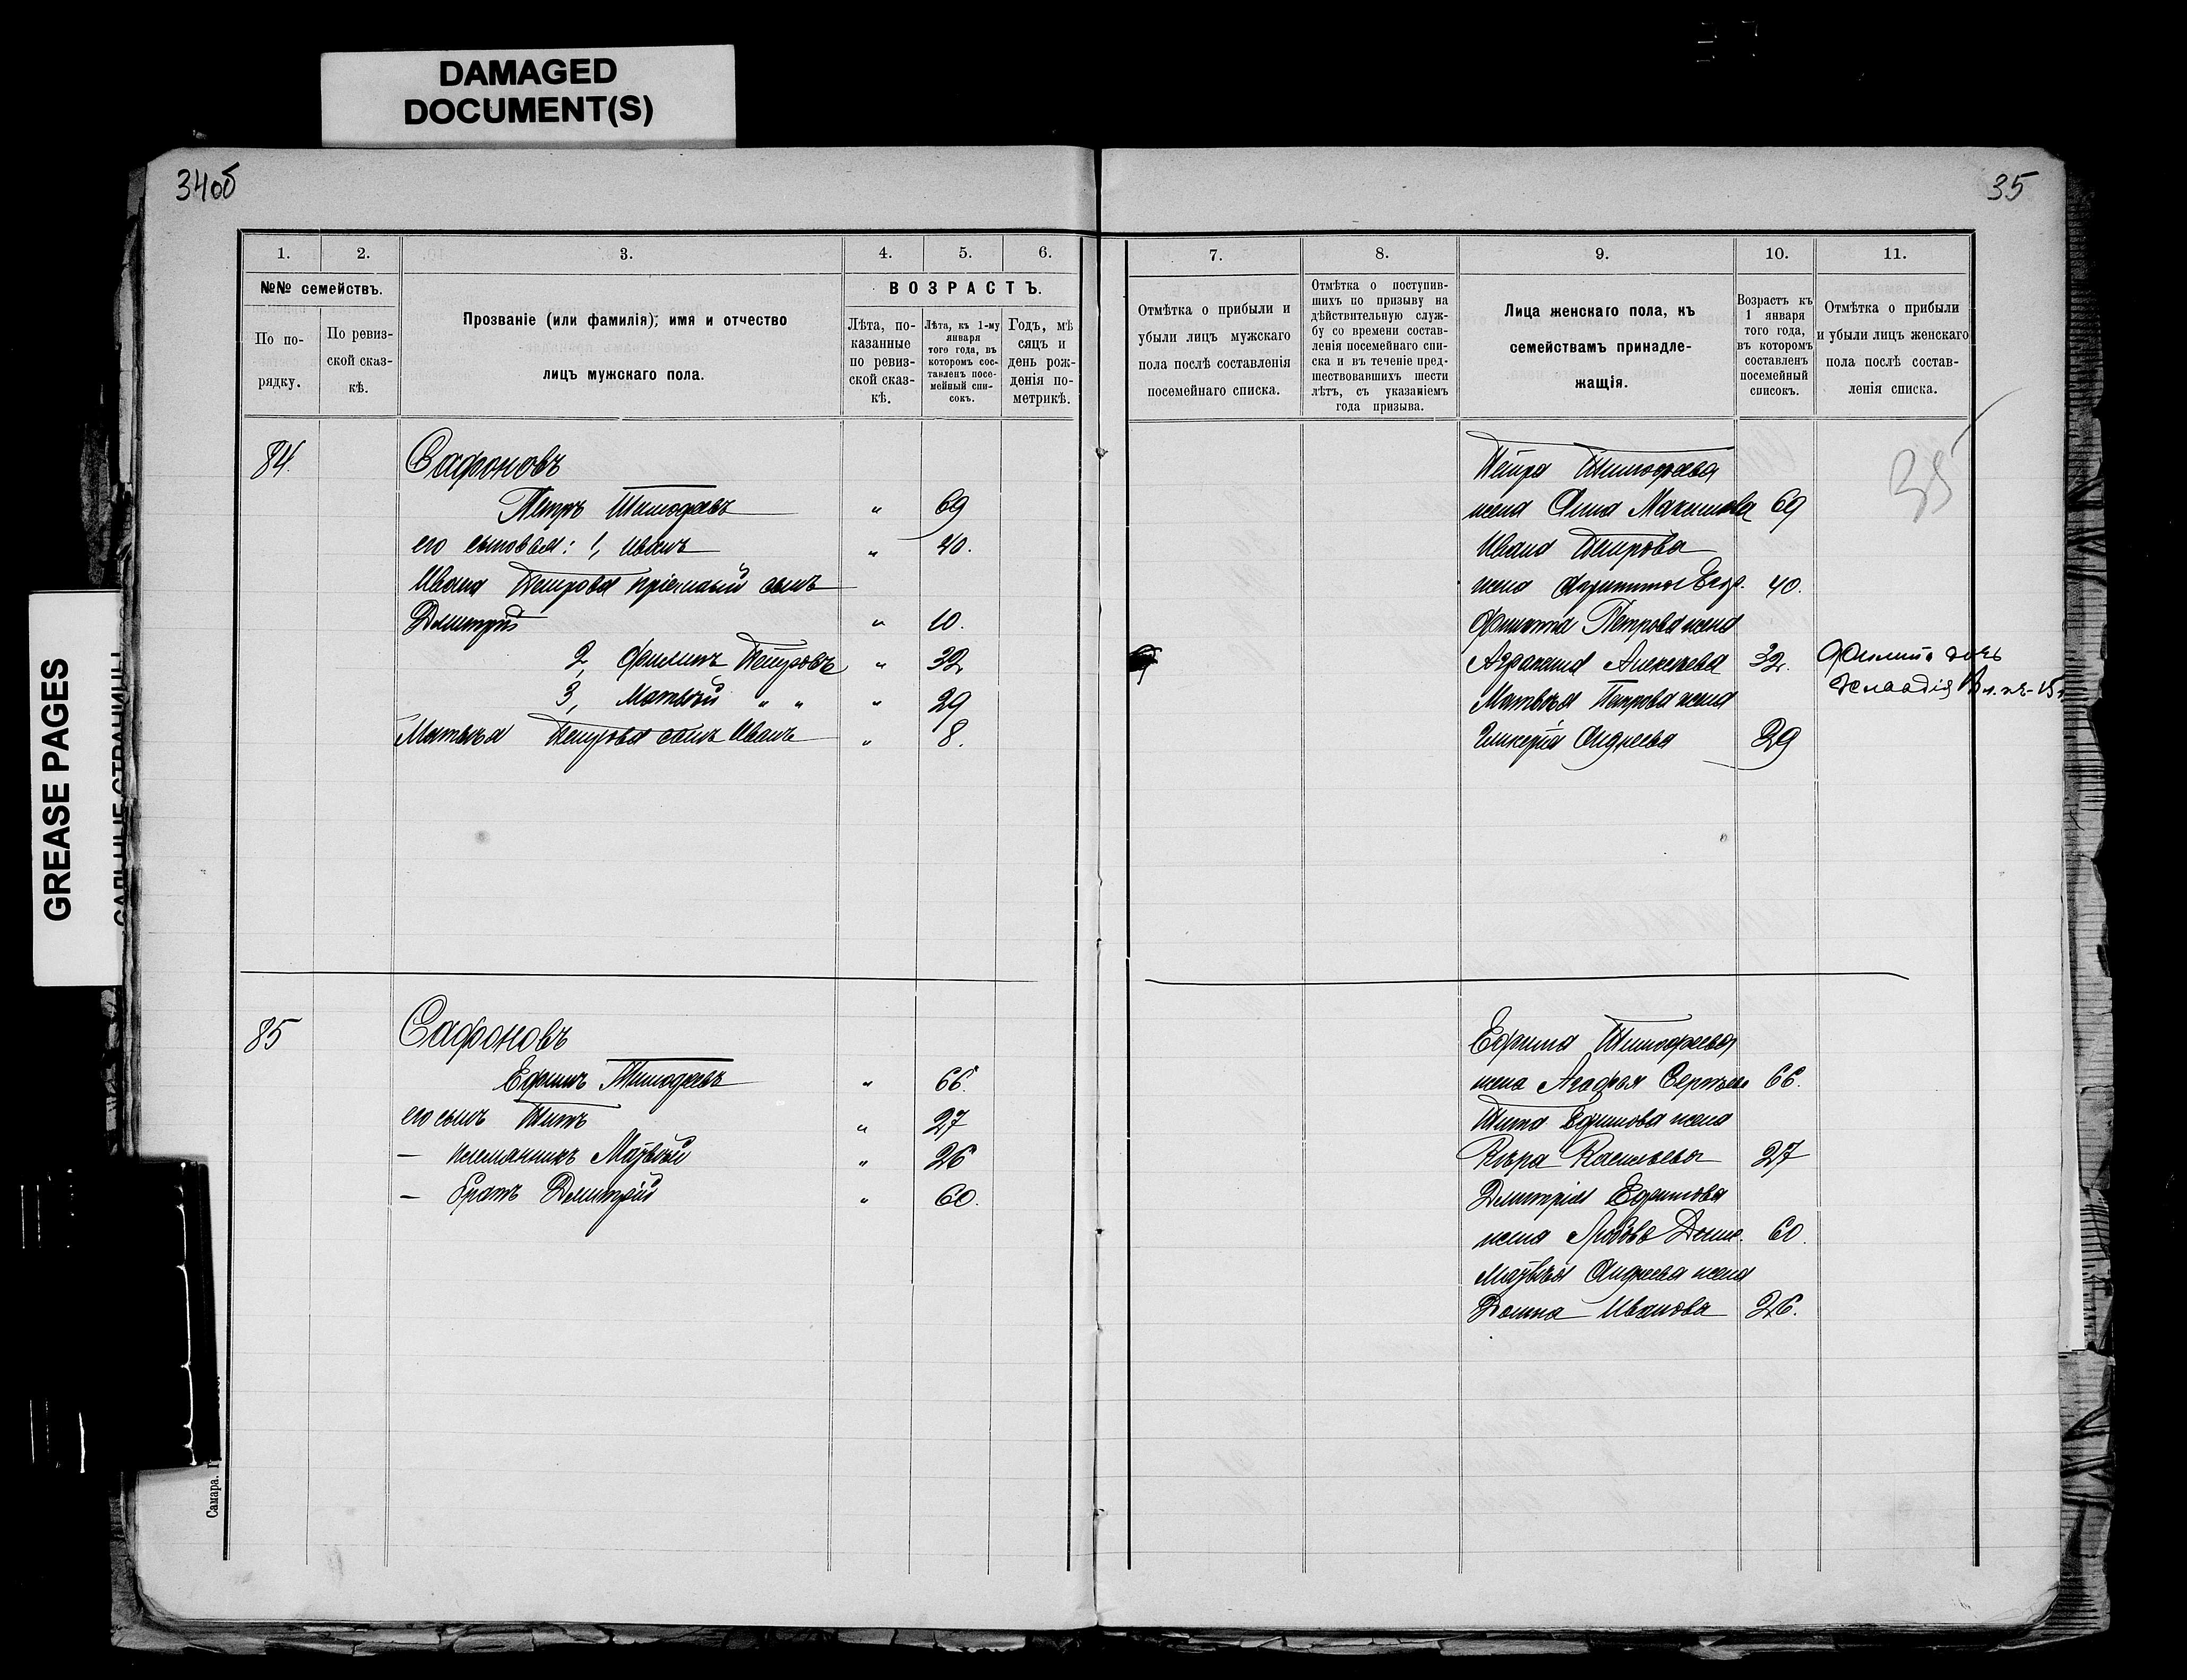 DAMAGED
DOCUMENT(S)
GREASE PAGES
34об
1.
2.
3.
4.
5.
6.
№№ семействъ.
По по-
рядку.
По ревиз-
ской сказ-
кѣ.
Прозваніе (или фамилія); имя и отчество
лицъ мужскаго пола.
ВОЗРАСТЪ.
Лѣта, по-
казанные
по ревиз-
ской сказ-
кѣ.
Лѣта, къ 1-му
января
того года, въ
которомъ сос-
тавленъ посе-
мейный спи-
сокъ.
Годъ, мѣ
сяцъ и
день рож-
денія по-
метрикѣ.
84.
Сафоновъ
Петръ Тимофеевъ " 69
его сыновья: 1, Иванъ " 40.
Ивана Петрова пріемный сынъ
Дмитрій " 10.
2, Филипъ Петровъ " 32
3, Матвѣй " " " 29
Матвѣя Петрова сынъ Иванъ " 8.
85
Сафоновъ
Ефимъ Тимофеевъ " 66.
его сынъ Титъ " 27
— племянникъ " 26
— братъ Дмитрій " 60.
Самара.
35
7.
8.
9.
10.
11.
Отмѣтка о прибыли и
убыли лицъ мужскаго
пола послѣ составленія
посемейнаго списка.
Отмѣтка о поступив-
шихъ по призыву на
дѣйствительную служ-
бу со времени состав-
ленія посемейнаго спи-
ска и въ теченіе пред-
шествовавшихъ шести
лѣтъ, съ указаніемъ
года призыва.
Лица женскаго пола, къ
семействамъ принадле-
жащія.
Возрастъ къ
1 января
того года,
въ которомъ
составленъ
посемейный
списокъ.
Отмѣтка о прибыли
и убыли лицъ женскаго
пола послѣ состав-
ленія списка.
35
Петра Тимофеева
жена Анна Максимова 69
Ивана Петрова
жена 40.
Филипа Петрова жена
Алексѣева 32.
Филипа дочь
Матвѣя Петрова жена
Гликерія Андреева 29
Ефима Тимофеева
жена Агафья Сергѣева 66.
Тита Ефимова жена
Васильева 27
Дмитрія Ефимова
жена Любовь 60.
Андреева жена
Домна Иванова 26.